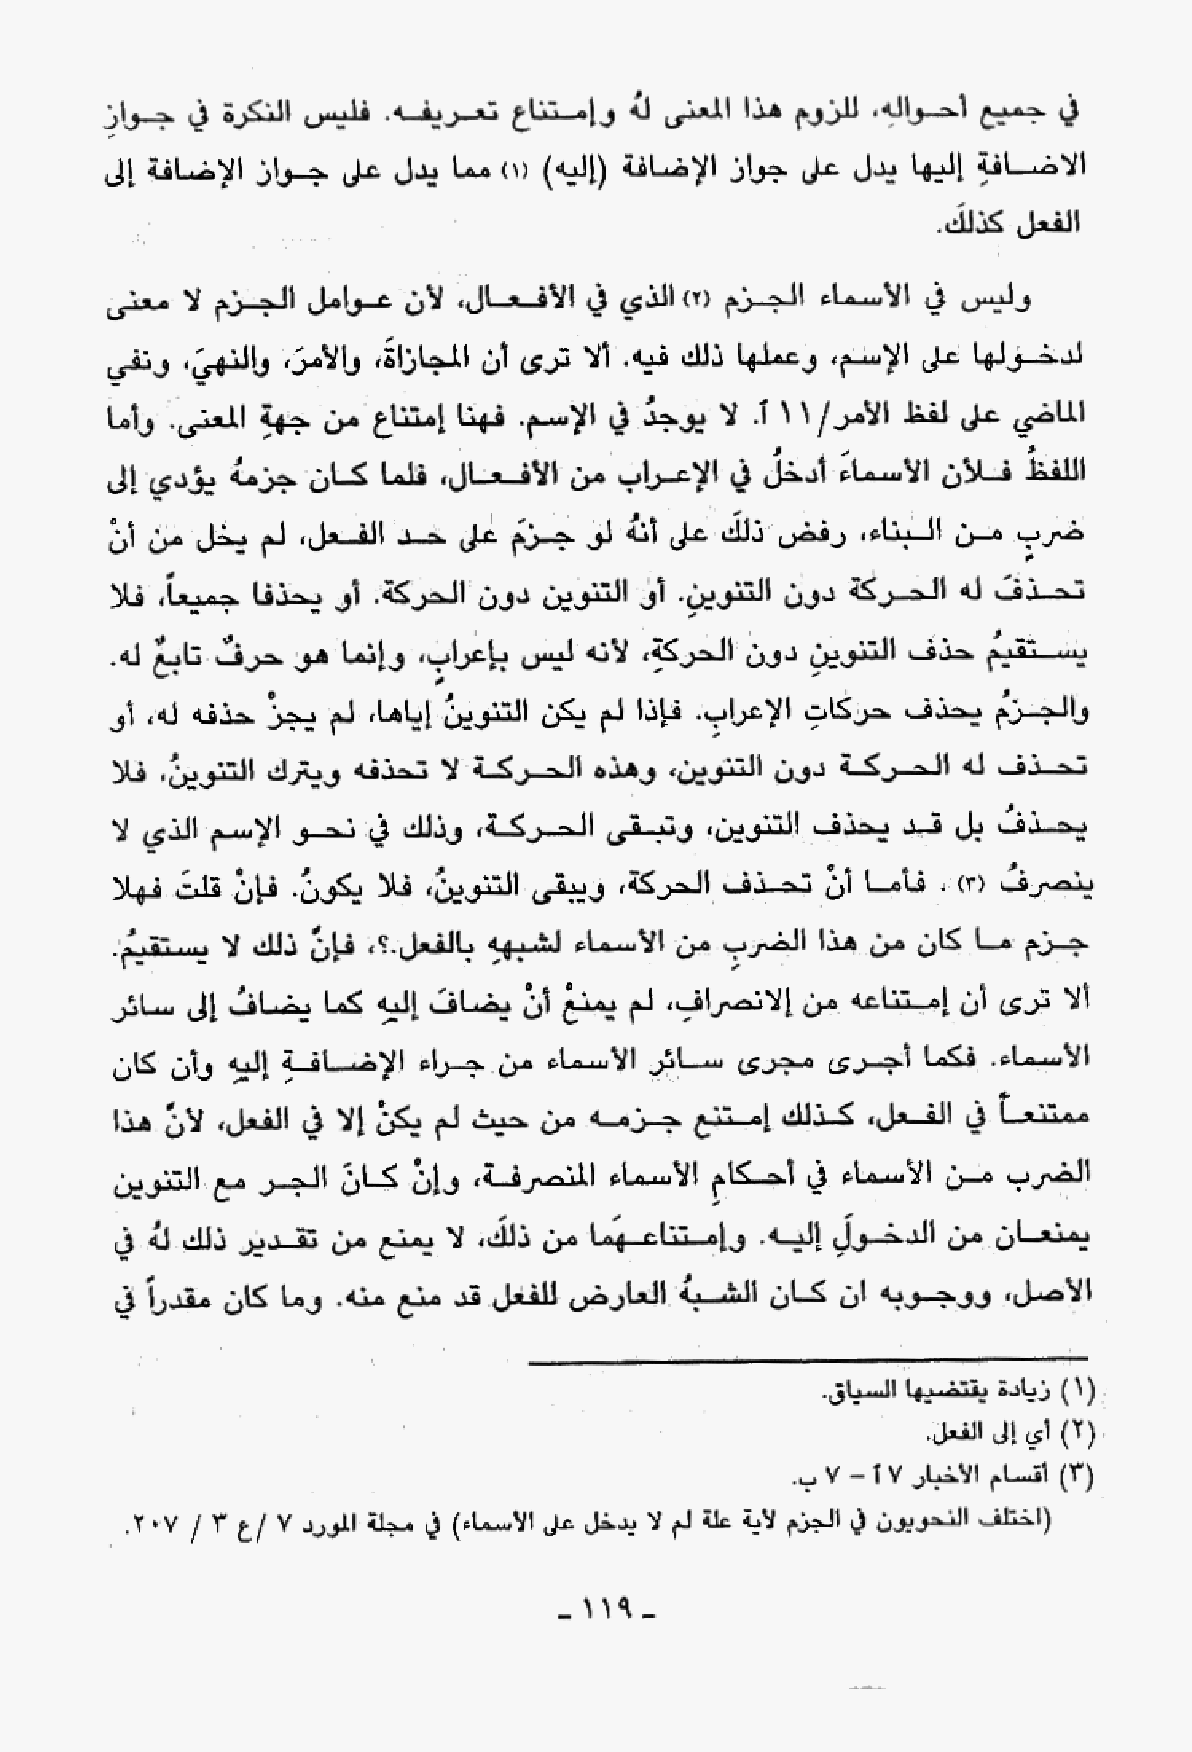 في جميع أحوالهِ، للزوم هذا المعنى لهُ وإمتناع تعريفه. فليس النكرة في جوازِ
الاضافةِ إليها يدل على جواز الإضافة (إليه) (١) مما يدل على جواز الإضافة إلى
الفعل كذلكَ.
وليس في الأسماء الجزم (٢) الذي في الأفعال، لأن عوامل الجزم لا معنى
لدخولها على الإسم، وعملها ذلك فيه. ألا ترى أن المجازاةَ، والأمرَ، والنهيَ، ونفي
الماضي على لفظ الأمر/١١ آ. لا يوجدُ في الإسم. فهنا إمتناع من جهةِ المعنى. وأما
اللفظُ فلأن الأسماءَ أدخلُ في الإعراب من الأفعال، فلما كان جزمهُ يؤدي إلى
ضربٍ من البناء، رفض ذلكَ على أنهُ لو جزمَ على حد الفعل، لم يخل من أنْ
تحذفَ له الحركة دون التنوينِ. أو التنوين دون الحركة. أو يحذفا جميعاً، فلا
يستقيمُ حذف التنوينِ دون الحركةِ، لأنه ليس بإعرابٍ، وإنما هو حرفٌ تابعٌ له.
والجزمُ يحذف حركاتِ الإعرابِ. فإذا لم يكن التنوينُ إياها، لم يجزْ حذفه له، أو
تحذف له الحركة دون التنوين، وهذه الحركة لا تحذفه ويترك التنوينُ، فلا
يحذفُ بل قد يحذف التنوين، وتبقى الحركة، وذلك في نحو الإسم الذي لا
ينصرفُ (٣) . فأما أنْ تحذف الحركة، ويبقى التنوينُ، فلا يكونُ. فإنْ قلتَ فهلا
جزم ما كان من هذا الضربِ من الأسماء لشبههِ بالفعل.؟، فإنَّ ذلك لا يستقيمُ.
ألا ترى أن إمتناعه من إلانصرافِ، لم يمنعْ أنْ يضافَ إليهِ كما يضافُ إلى سائر
الأسماء. فكما أجرى مجرى سائر الأسماء من جراء الإضافةِ إليهِ وأن كان
ممتنعاً في الفعل، كذلك إمتنع جزمه من حيث لم يكنْ إلا في الفعل، لأنَّ هذا
الضرب من الأسماء في أحكامِ الأسماء المنصرفة، وإنْ كانَ الجر مع التنوين
يمنعان من الدخولَِ إليه. وإمتناعهَما من ذلكَ، لا يمنع من تقدير ذلك لهُ في
الأصل، ووجوبه ان كان الشبهُ العارض للفعل قد منع منه. وما كان مقدراً في
(١) زيادة يقتضيها السياق.
(٢) أي إلى الفعل.
(٣) أقسام الأخبار ٧ آ – ٧ ب.
(اختلف النحويون في الجزم لأية علة لم لا يدخل على الأسماء) في مجلة المورد ٧ /ع ٣ / ٢٠٧.
ـ ١١٩ ـ